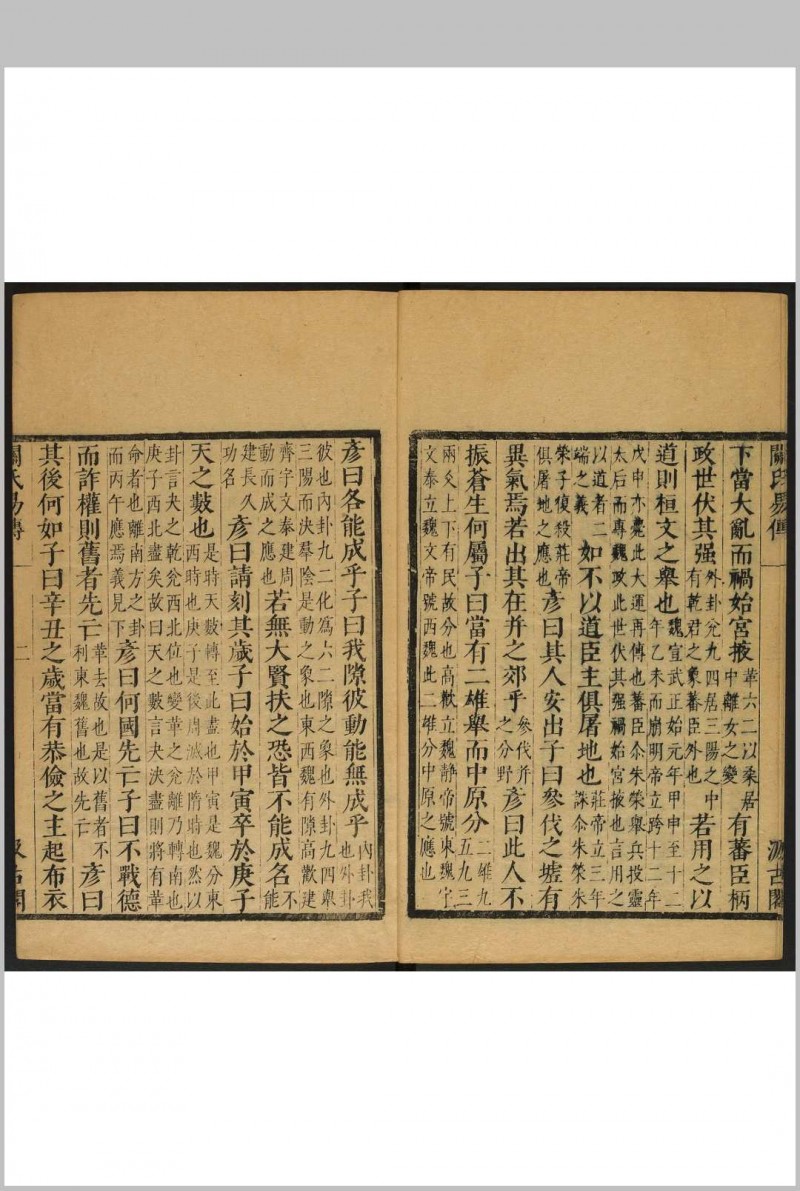 關氏易傳 一 汲古閣
下當大亂而禍始宮掖革六二以柔居中離女之變有蕃臣柄
政世伏其强外卦兊九四居三陽之中有乾君之象蕃臣外也若用之以
道則桓文之舉也魏宣武正始元年甲申至十二年乙未而崩明帝立跨十二年
戊申亦薨此大運再傳也蕃臣尒朱榮舉兵投靈太后而專魏政此世伏其强禍始宮掖也言用之
以道者二端之義如不以道臣主俱屠地也莊帝立三年誅尒朱榮朱
榮子復殺莊帝俱屠地之應也彥曰其人安出子曰參伐之墟有
異氣焉若出其在并之郊乎參伐并之分野彥曰此人不
振蒼生何屬子曰當有二雄舉而中原分二雄九五九三
兩爻上下有民故分也高歡立魏靜帝號東魏宇文泰立魏文帝號西魏此二雄分中原之應也
彥曰各能成乎子曰我隙彼動能無成乎內卦我也外卦
彼也內卦九二化爲六二隙之象也外卦九四與三陽而決羣陰是動之象也東西魏有隙高歡建
齊宇文泰建周動而成之應也若無大賢扶之恐皆不能成名不能
建長久功名彥曰請刻其歲子曰始於甲寅卒於庚子
天之數也是時天數轉至此盡也甲寅是魏分東西時也庚子是後周滅於隋時也然以
卦言夬之乾兊西北位也變革之兊離乃轉南也庚子西北盡矣故曰天之數言夬決盡則將有革
命者也離南方之卦而丙午應焉義見下彥曰何國先亡子曰不戰德
而詐權則舊者先亡革去故也是以舊者不利東魏舊也故先亡彥曰
其後何如子曰辛丑之歲當有恭儉之主起布衣
關氏易傳 二 汲古閣